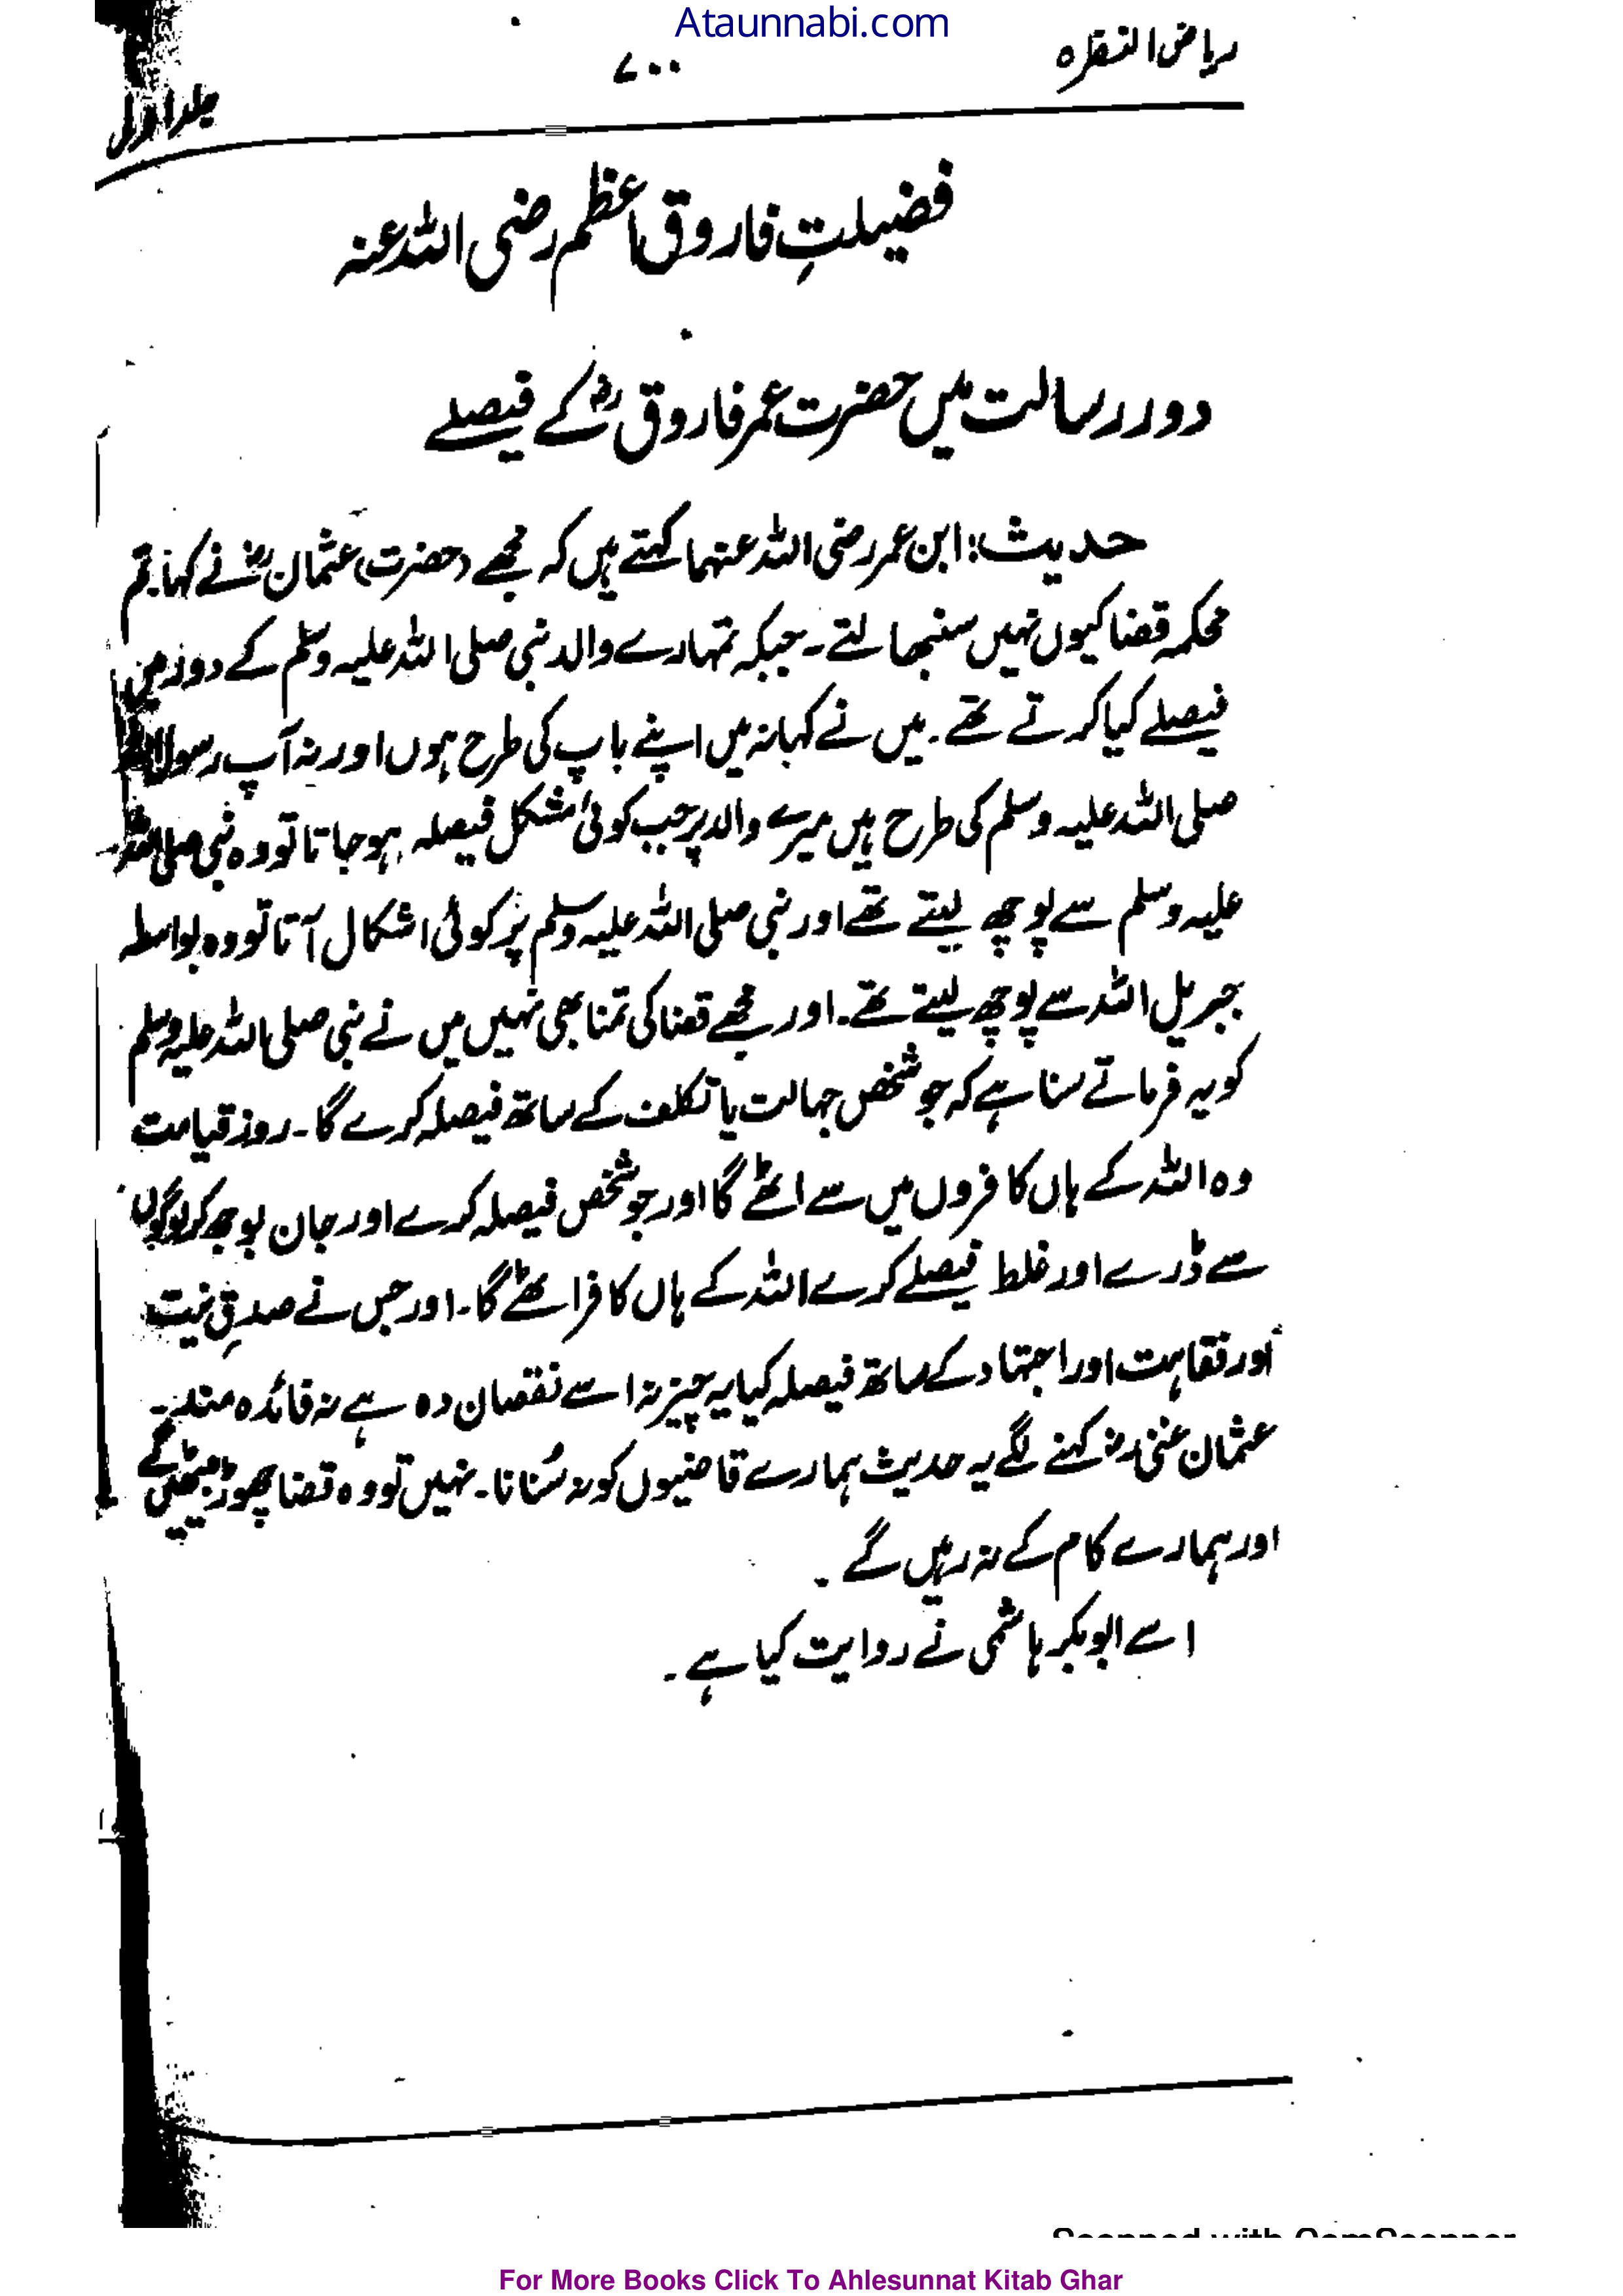 Ataunnabi.com
ریاض النضرہ
۷۰۰
جلد اول
فضیلتِ فاروق اعظم رضی اللہ عنہ
دور رسالت میں حضرت عمر فاروق رضؓ کے فیصلے
حدیث: ابن عمر رضی اللہ عنہما کہتے ہیں کہ مجھے (حضرت) عثمان رضؓ نے کہا۔ تم
محکمہ قضا کیوں نہیں سنبھالتے۔ جبکہ تمہارے والد نبی صلی اللہ علیہ وسلم کے دور میں
فیصلے کیا کرتے تھے۔ میں نے کہا نہ میں اپنے باپ کی طرح ہوں اور نہ آپ رسول اللہ
صلی اللہ علیہ وسلم کی طرح ہیں میرے والد پر جب کوئی مشکل فیصلہ ہو جاتا تو وہ نبی صلی اللہ
علیہ وسلم سے پوچھ لیتے تھے اور نبی صلی اللہ علیہ وسلم پر کوئی اشکال آتا تو وہ بواسطہ
جبریل اللہ سے پوچھ لیتے تھے۔ اور مجھے قضا کی تمنا بھی نہیں میں نے نبی صلی اللہ علیہ وسلم
کو یہ فرماتے سنا ہے کہ جو شخص جہالت یا تکلف کے ساتھ فیصلہ کرے گا۔ روز قیامت
وہ اللہ کے ہاں کافروں میں سے اٹھے گا اور جو شخص فیصلہ کرے اور جان بوجھ کر لوگوں
سے ڈرے اور غلط فیصلے کرے اللہ کے ہاں کافر اٹھے گا۔ اور جس نے صدقِ نیت
اور فقاہت اور اجتہاد کے ساتھ فیصلہ کیا یہ چیز نہ اسے نقصان دہ ہے نہ فائدہ مند۔
عثمان غنی رضؓ کہنے لگے یہ حدیث ہمارے قاضیوں کو نہ سُنانا۔ نہیں تو وہ قضا چھوڑ بیٹھیں گے
اور ہمارے کام کے نہ رہیں گے۔
اسے ابوبکر ہاشمی نے روایت کیا ہے۔
Scanned with CamScanner
For More Books Click To Ahlesunnat Kitab Ghar